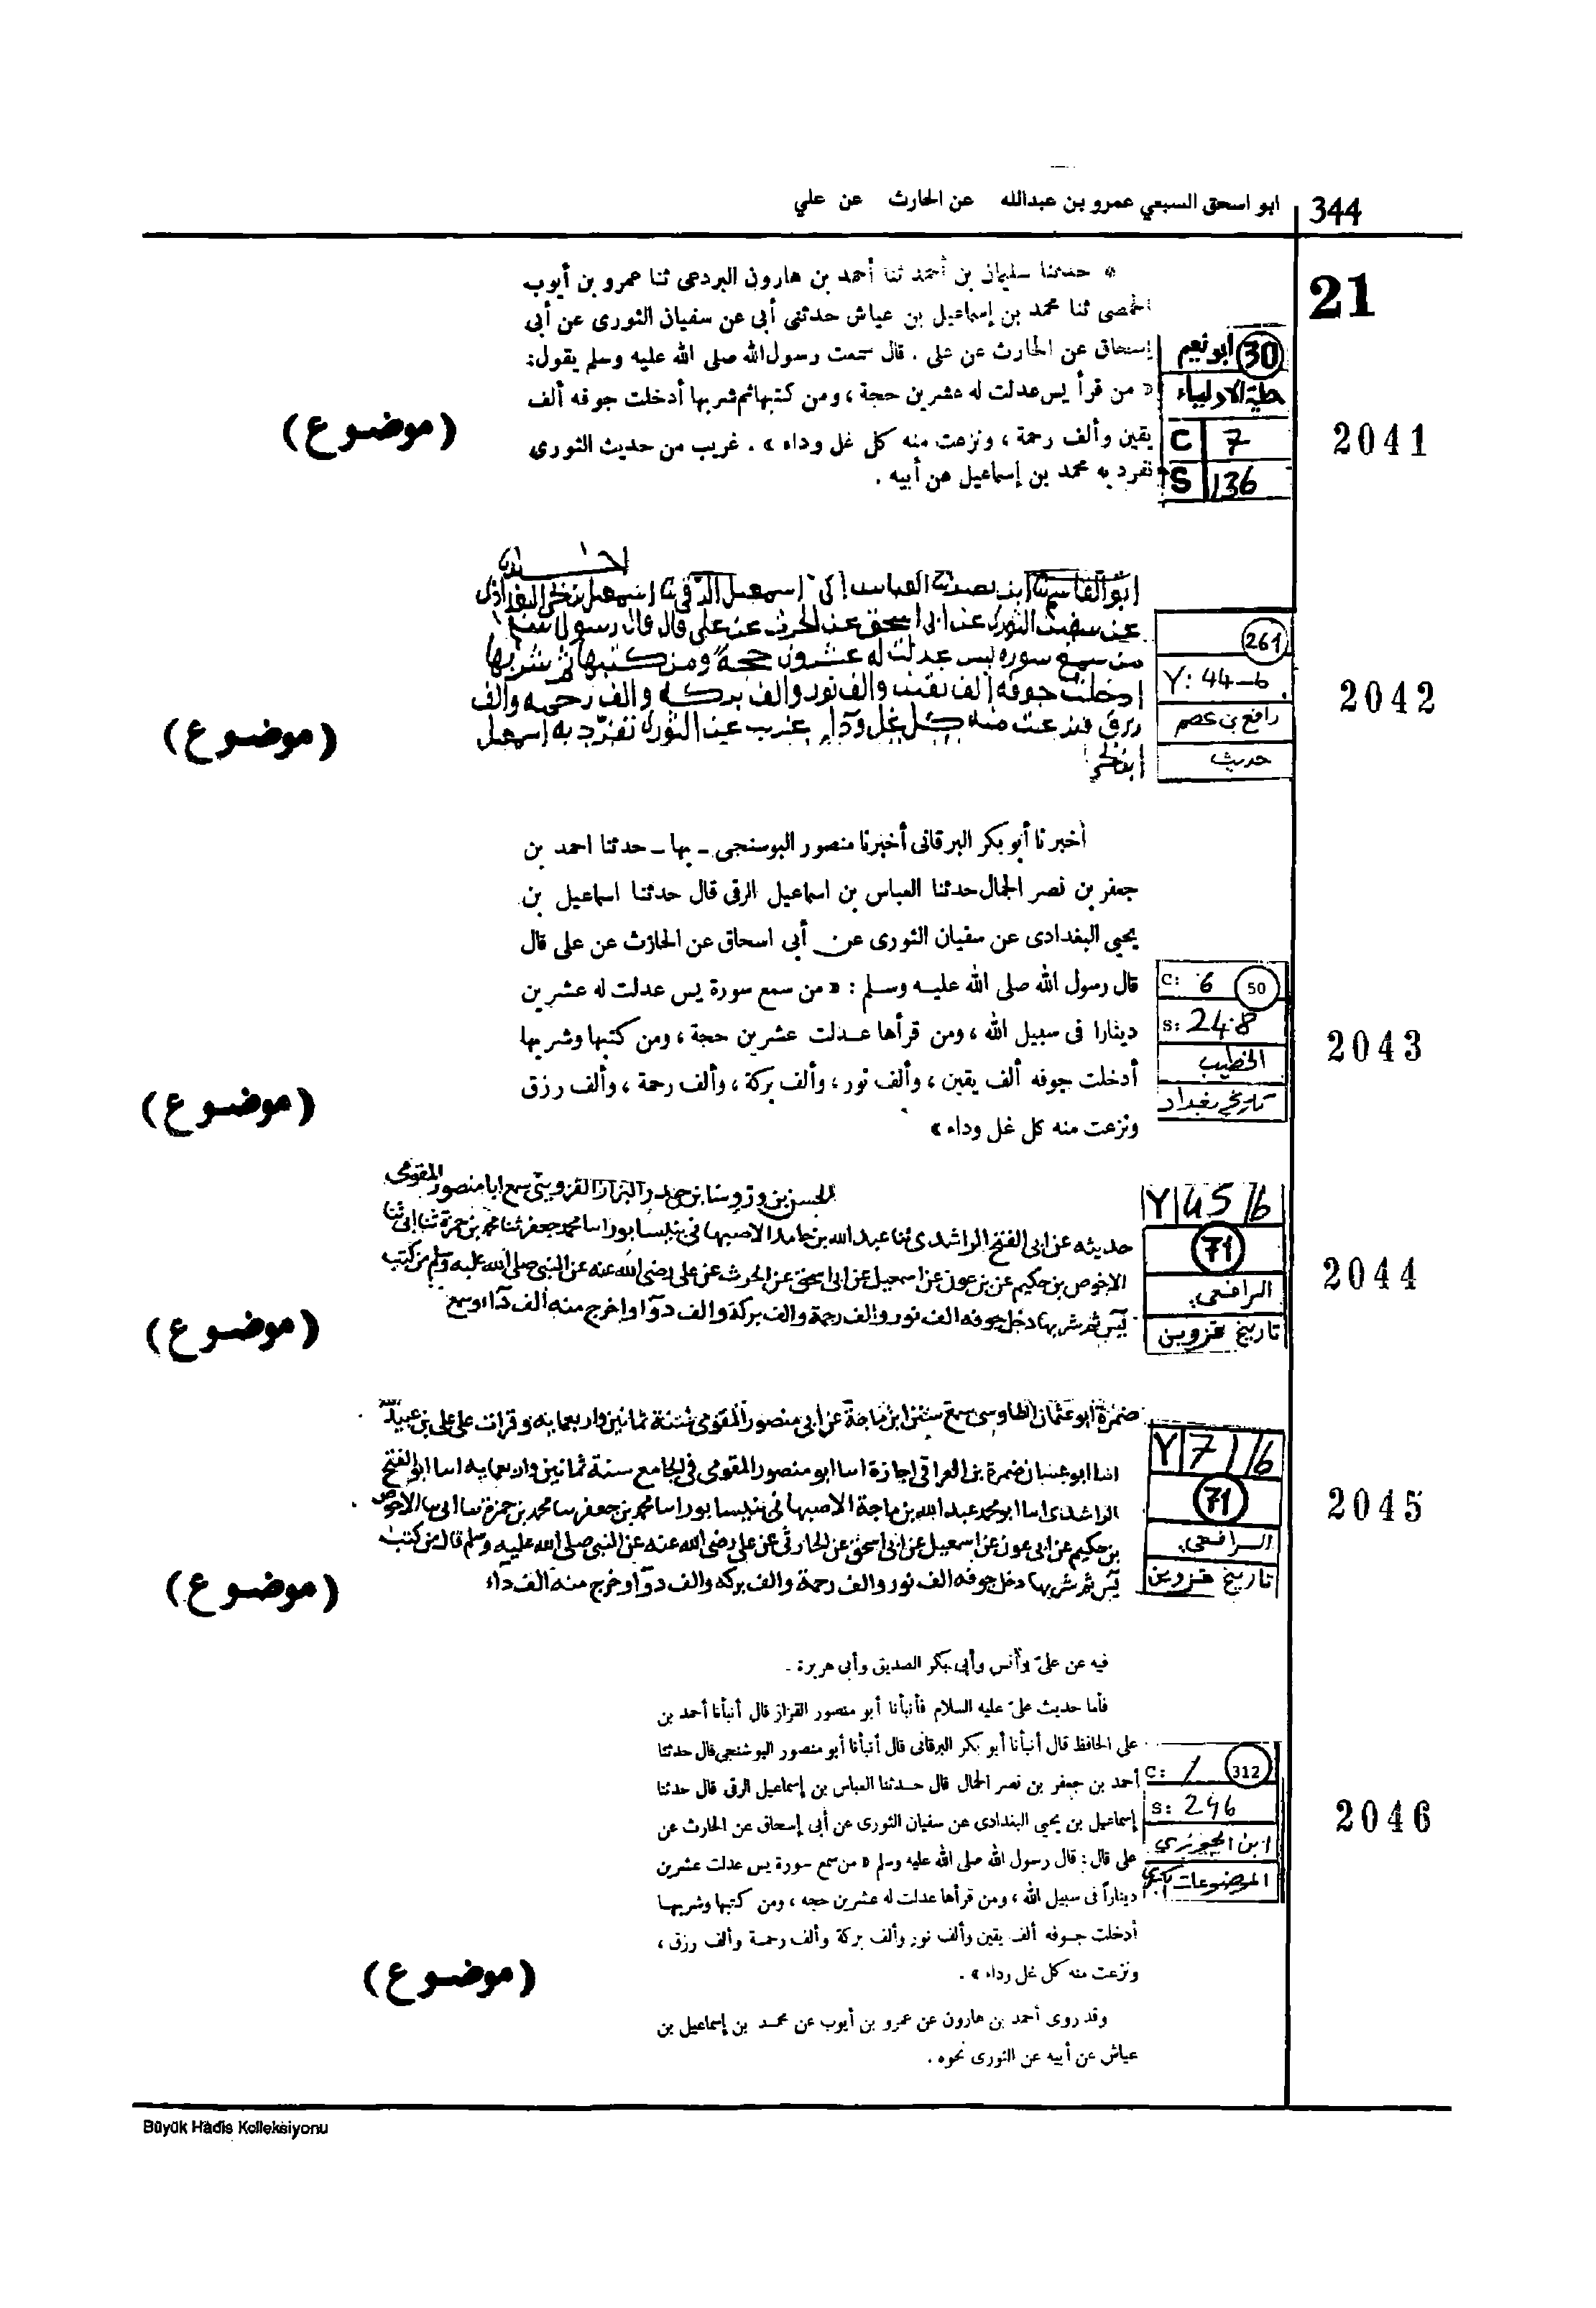 344
ابو اسحق السبعي عمرو بن عبدالله عن الحارث عن علي
21
* حدثنا سليمان بن أحمد ثنا أحمد بن هارون البردعى ثنا عمرو بن أيوب
الحمصى ثنا محمد بن إسماعيل بن عياش حدثنى أبى عن سفيان الثورى عن أبى
إسحاق عن الحارث عن على . قال سمعت رسول الله صلى الله عليه وسلم يقول:
« من قرأ يس عدلت له عشرين حجة ، ومن كتبها ثم شربها أدخلت جوفه ألف
يقين وألف رحمة ، ونزعت منه كل غل وداء » . غريب من حديث الثورى
تفرد به محمد بن إسماعيل عن أبيه .
30 ابو نعيم
حلية الاولياء
C 7
S 136
2041
(موضوع)
عن سفين الثوري عن ابي اسحق عن الحرث عن علي قال قال رسول الله
من سمع سوره يس عدلت له عشرون حجة ومن كتبها ثم شربها
ادخلت جوفه الف يقين والف نور والف بركه والف رحمه والف
رزق ونزعت منه كل غل وداء غريب عن الثوري تفرد به اسمعيل
ابن يحيى
261
Y: 44-b
رافع بن عصم
حديث
2042
(موضوع)
أخبرنا أبو بكر البرقانى أخبرنا منصور البوسنجى - بها - حدثنا احمد بن
جعفر بن نصر الجمال حدثنا العباس بن اسماعيل الرقى قال حدثنا اسماعيل بن
يحيي البغدادى عن سفيان الثورى عن أبى اسحاق عن الحارث عن على قال
قال رسول الله صلى الله عليه وسلم : « من سمع سورة يس عدلت له عشرين
دينارا فى سبيل الله ، ومن قرأها عدلت عشرين حجة ، ومن كتبها وشربها
أدخلت جوفه ألف يقين ، وألف نور ، وألف بركة ، وألف رحمة ، وألف رزق
ونزعت منه كل غل وداء »
C: 6 50
S: 248
الخطيب
تاريخ بغداد
2043
(موضوع)
سمع ابا منصور المقومى
حديثه عن ابى الفتح الراشدى ثنا عبد الله بن حامد الاصبهانى بنيسابور محمد جعفر ثنا محمد بن حمزة ثنا ابى ثنا
الاخوص بن حكيم عن بن عون عن اسمعيل عن ابى اسحق عن الحرث عن على رضى الله عنه عن النبى صلى الله عليه وسلم من كتب
يس ثم شربها دخل جوفه الف نور والف رحمة والف بركة والف دوآ واخرج منه الف دآء وسمع
Y 45/b
71
الرافعى.
تاريخ قزوين
2044
(موضوع)
ضمرة ابو عثمان الطاوسى سمع سنن ابن ماجة عن ابى منصور المقومى سنة ثمانين واربعماية وقرات على على بن عبيد الله
ضمرة بن العراقى اجازة ابو منصور المقومى فى الجامع سنة ثمانين واربعمايه ابو الفتح
الراشدى ابو محمد عبد الله بن ماجة الاصبهانى بنيسابور محمد بن جعفر محمد بن حمزة الاحوص
بن حكيم عن ابى عون عن اسمعيل عن ابى اسحق عن الحارثى عن على رضى الله عنه عن النبى صلى الله عليه وسلم قال من كتب
يس ثم شربها دخل جوفه الف نور والف رحمة والف بركه والف دوآ وخرج منه الف داء
Y 71/b
71
الرافعى.
تاريخ قزوين
2045
(موضوع)
فيه عن علىّ وأنس وأبى بكر الصديق وأبى هريرة .
فأما حديث علىّ عليه السلام فأنبأنا أبو منصور القزاز قال أنبأنا أحمد بن
على الحافظ قال أنبأنا أبو بكر البرقانى قال أنبأنا أبو منصور البوشنجى قال حدثنا
أحمد بن جعفر بن نصر الحال قال حدثنا العباس بن إسماعيل الرقى قال حدثنا
إسماعيل بن يحيي البغدادى عن سفيان الثورى عن أبى إسحاق عن الحارث عن
على قال : قال رسول الله صلى الله عليه وسلم « من سمع سورة يس عدلت عشرين
ديناراً فى سبيل الله ، ومن قرأها عدلت له عشرين حجه ، ومن كتبها وشربها
أدخلت جوفه ألف يقين وألف نور وألف بركة وألف رحمة وألف رزق ،
ونزعت منه كل غل رداء » .
وقد روى أحمد بن هارون عن عمرو بن أيوب عن محمد بن إسماعيل بن
عياش عن أبيه عن الثورى نحوه .
C: 1 312
S: 246
ابن الجوزي
الموضوعات كبرى
2046
(موضوع)
Büyük Hadis Kolleksiyonu